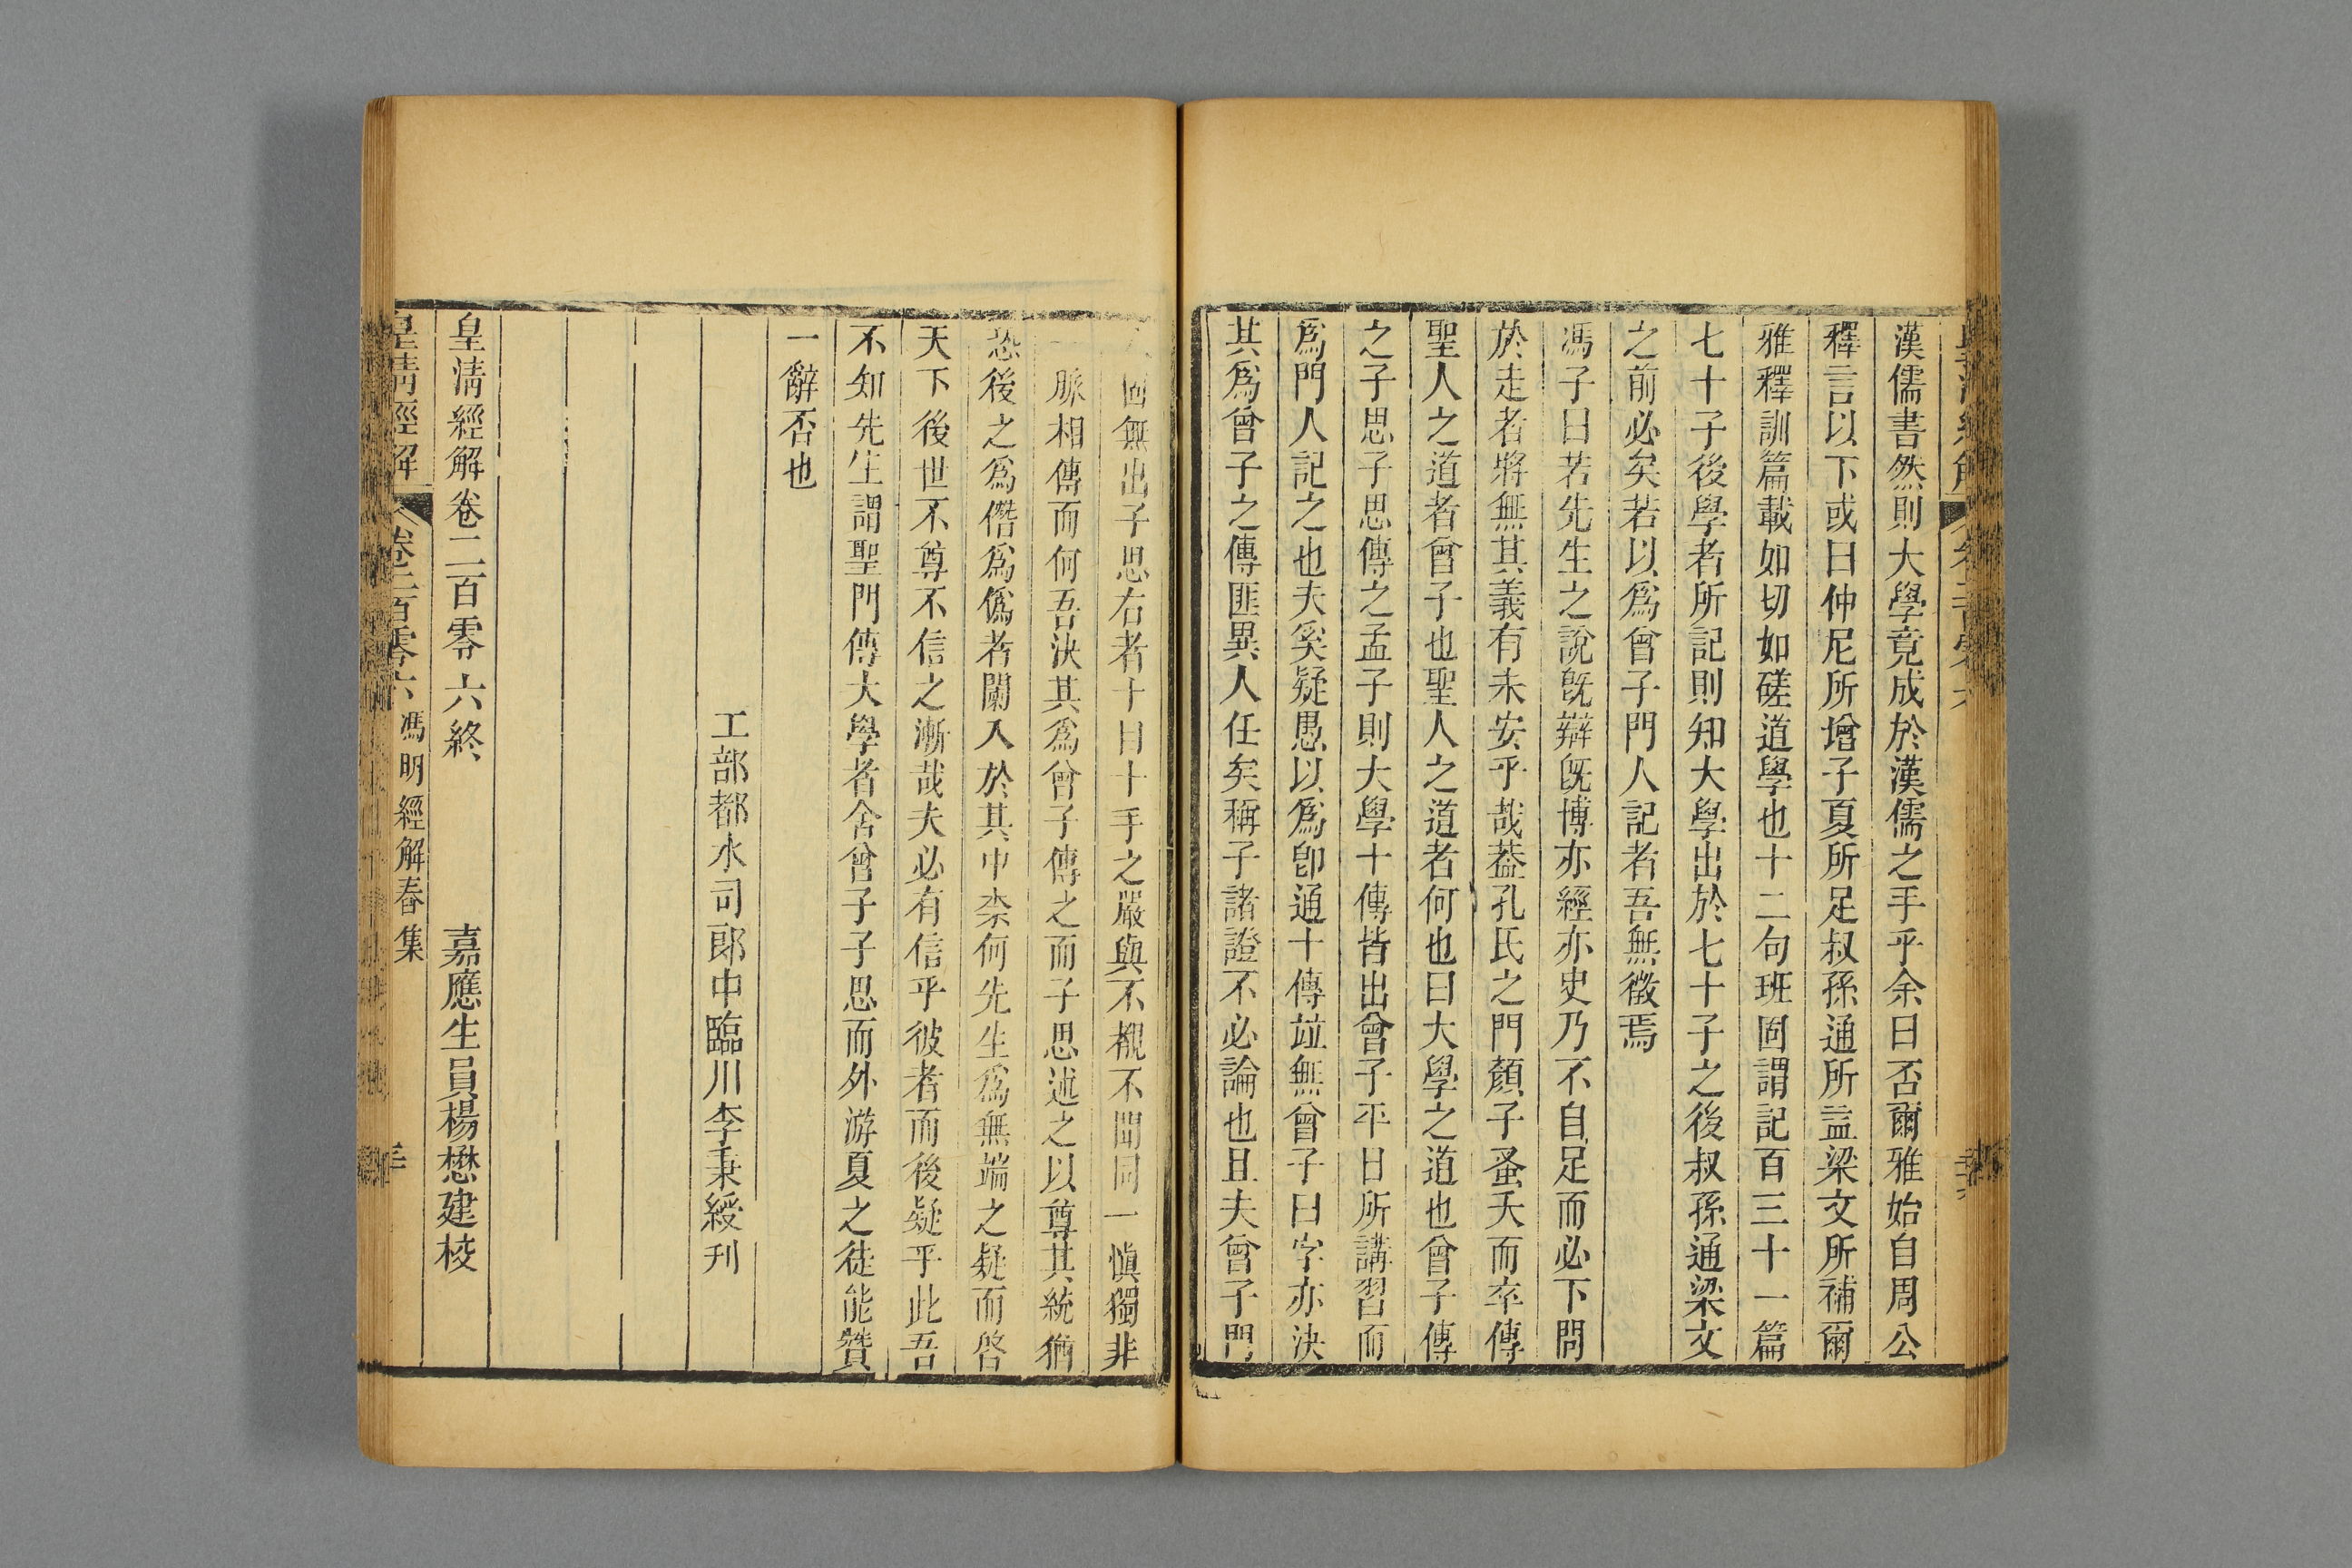 漢儒書然則大學竟成於漢儒之手乎余曰否爾雅始自周公
釋言以下或曰仲尼所增子夏所足叔孫通所益梁文所補爾
雅釋訓篇載如切如磋道學也十二句班固謂記百三十一篇
七十子後學者所記則知大學出於七十子之後叔孫通梁文
之前必矣若以爲曾子門人記者吾無徵焉
馮子曰若先生之說旣辯旣博亦經亦史乃不自足而必下問
於走者將無其義有未安乎哉葢孔氏之門顏子蚤夭而卒傳
聖人之道者曾子也聖人之道者何也曰大學之道也曾子傳
之子思子思傳之孟子則大學十傳皆出曾子平日所講習而
爲門人記之也夫奚疑愚以爲卽通十傳竝無曾子曰字亦決
其爲曾子之傳匪異人任矣稱子諸證不必論也且夫曾子門
固無出子思右者十目十手之嚴與不覩不聞同一愼獨非
一脈相傳而何吾決其爲曾子傳之而子思述之以尊其統猶
恐後之爲僭爲僞者闌入於其中柰何先生爲無端之疑而啓
天下後世不尊不信之漸哉夫必有信乎彼者而後疑乎此吾
不知先生謂聖門傳大學者舍曾子子思而外游夏之徒能贊
一辭否也
工部都水司郎中臨川李秉綬刊
皇清經解卷二百零六終
嘉應生員楊懋建校
皇清經解
卷二百零六
馮明經解舂集